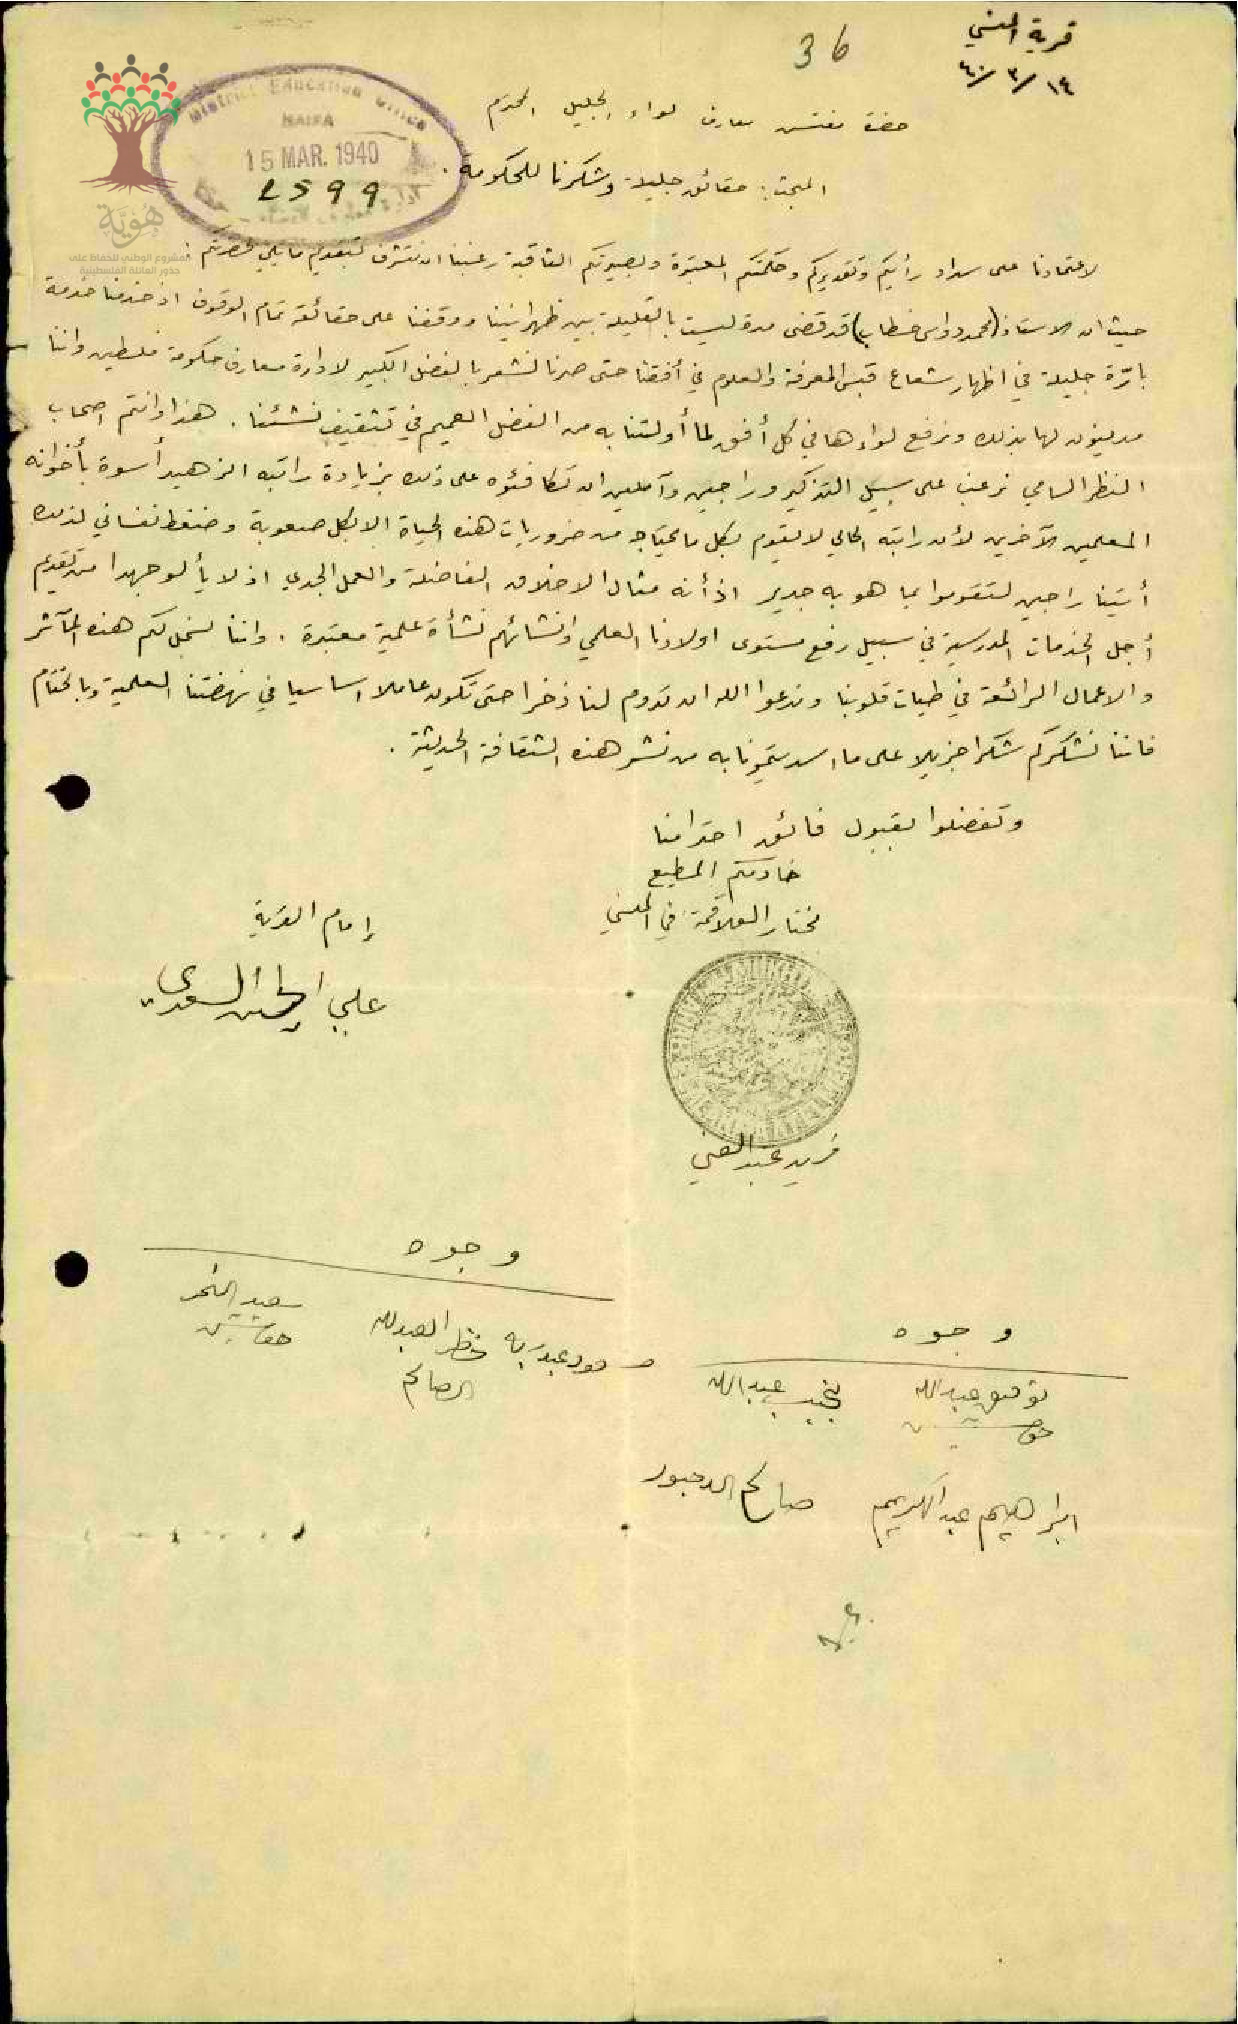 قرية المنسي
١٤/٣/٤٠
36
District Education Office
HAIFA
15 MAR. 1940
2599
هُوِيَّة
المشروع الوطني للحفاظ على
جذور العائلة الفلسطينية
حضرة مفتش معارف لواء الجليل المحترم
المبحث: حقائق جليلة وشكرنا للحكومة.
لاعتمادنا على سداد رأيكم وتقديركم وحكمتكم المعتبرة وبصيرتكم الثاقبة رغبنا ان نتشرف بتقديم ما يلي لحضرتكم:
حيث ان الاستاذ (محمد دواس خطاب) قد قضى مدة ليست بالقليلة بين ظهرانينا ووقفنا على حقائقه تمام الوقوف اذ خدمنا خدمة
بارّة جليلة في اظهار شعاع قبس المعرفة والعلوم في أفقنا حتى صرنا نشعر بالفضل الكبير لادارة معارف حكومة فلسطين واننا
مدينون لها بذلك ونرفع لواءها في كل أفق لما أولتنا به من الفضل العميم في تثقيف نشئنا. هذا وانتم اصحاب
النظر السامي نرغب على سبيل التذكير وراجين وآملين ان تكافئوه على ذلك بزيادة راتبه الزهيد أسوة بأخوانه
المعلمين الآخرين لأن راتبه الحالي لا يقوم بكل ما يحتاج من ضروريات هذه الحياة الا بكل صعوبة وضغط نفساني لذلك
أتينا راجين لتقوموا بما هو به جدير اذ أنه مثال الاخلاق الفاضلة والعمل الجدي اذ لا يألو جهدا من تقديم
أجل الخدمات المدرسية في سبيل رفع مستوى اولادنا العلمي وانشائهم نشأة علمية معتبرة. واننا نسجل لكم هذه المآثر
والاعمال الرائعة في طيات قلوبنا وندعوا الله ان تدوم لنا ذخرا حتى تكون عاملا اساسيا في نهضتنا العلمية وبالختام
فاننا نشكركم شكرا جزيلا على ما اسديتمونا به من نشر هذه الثقافة الحديثة.
وتفضلوا بقبول فائق احترامنا
خادمكم المطيع
مختار العلاقمة في المنسي
إمام القرية
علي الحسن السعدي
فريد عبد الغني
وجوه
سعيد
خضر العبدلله
الصالح
عبد ربه
وجوه
توفيق عبدالله
نجيب عبدالله
ابراهيم عبد الكريم
صالح الدحبور